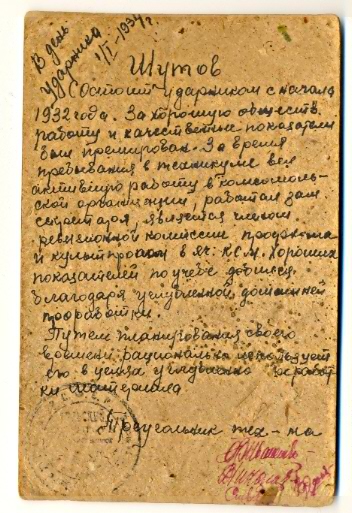 В день
ударника
1/I-1934 г.
Шутов
Состоит ударником с начала
1932 года. За хорошую обществ.
работу и качественные показатели
был премирован. За время
пребывания в техникуме вел
активную работу в комсомоль-
ской организации, работал зам
секретаря, является членом
ревизионной комиссии профкома
и культпропом в яч. КСМ. Хороших
показателей по учебе добился
благодаря углубленной домашней
проработки.
Путем планирования своего
времени, рационально использует
его в
ки материала
Треугольник тех-ма